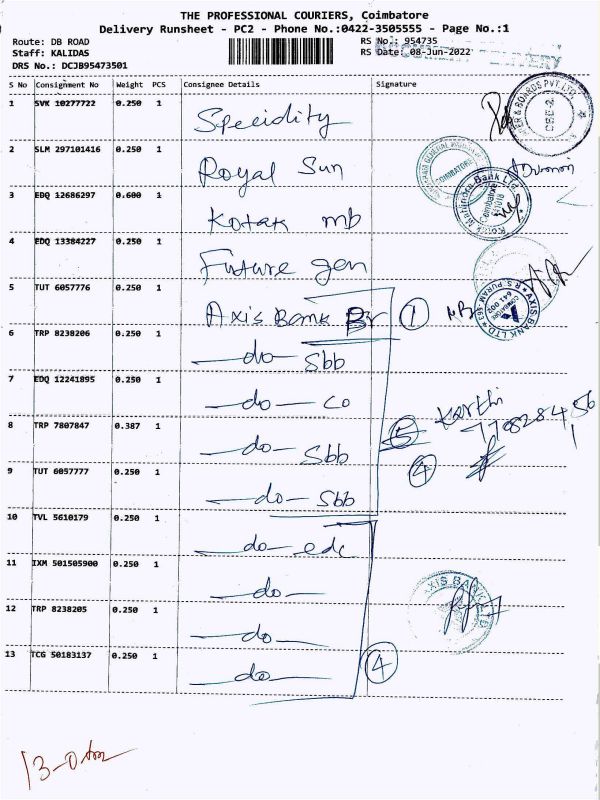 THE PROFESSIONAL COURIERS, Coimbatore
Delivery Runsheet - PC2 - Phone No.:0422-3505555 - Page No.:1
Route: DB ROAD
RS No.: 954735
Staff: KALIDAS
RS Date: 08-Jun-2022
DRS No.: DCJB95473501
S No Consignment No Weight PCS Consignee Details Signature
1 SVK 10277722 0.250 1
2 SLM 297101416 0.250 1 Royal Sun
3 EDQ 12686297 0.600 1 Kotak mb
4 EDQ 13384227 0.250 1 Future gen
5 TUT 6057776 0.250 1 Axis Bank Br 1
6 TRP 8238206 0.250 1 do Sbb
7 EDQ 12241895 0.250 1 do CO
Karthi
8 TRP 7807847 0.387 1 do Sbb 5
4
9 TUT 6057777 0.250 1 do Sbb
10 TVL 5610179 0.250 1 do edc
11 IXM 501505900 0.250 1 do
12 TRP 8238205 0.250 1 do
13 TCG 50183137 0.250 1 do 4
& BOARDS PVT. LTD
COIMBATORE
Kotak Mahindra Bank Ltd.
AXIS BANK LTD
R.S. PURAM
COIMBATORE
641 002
AXIS BANK LTD